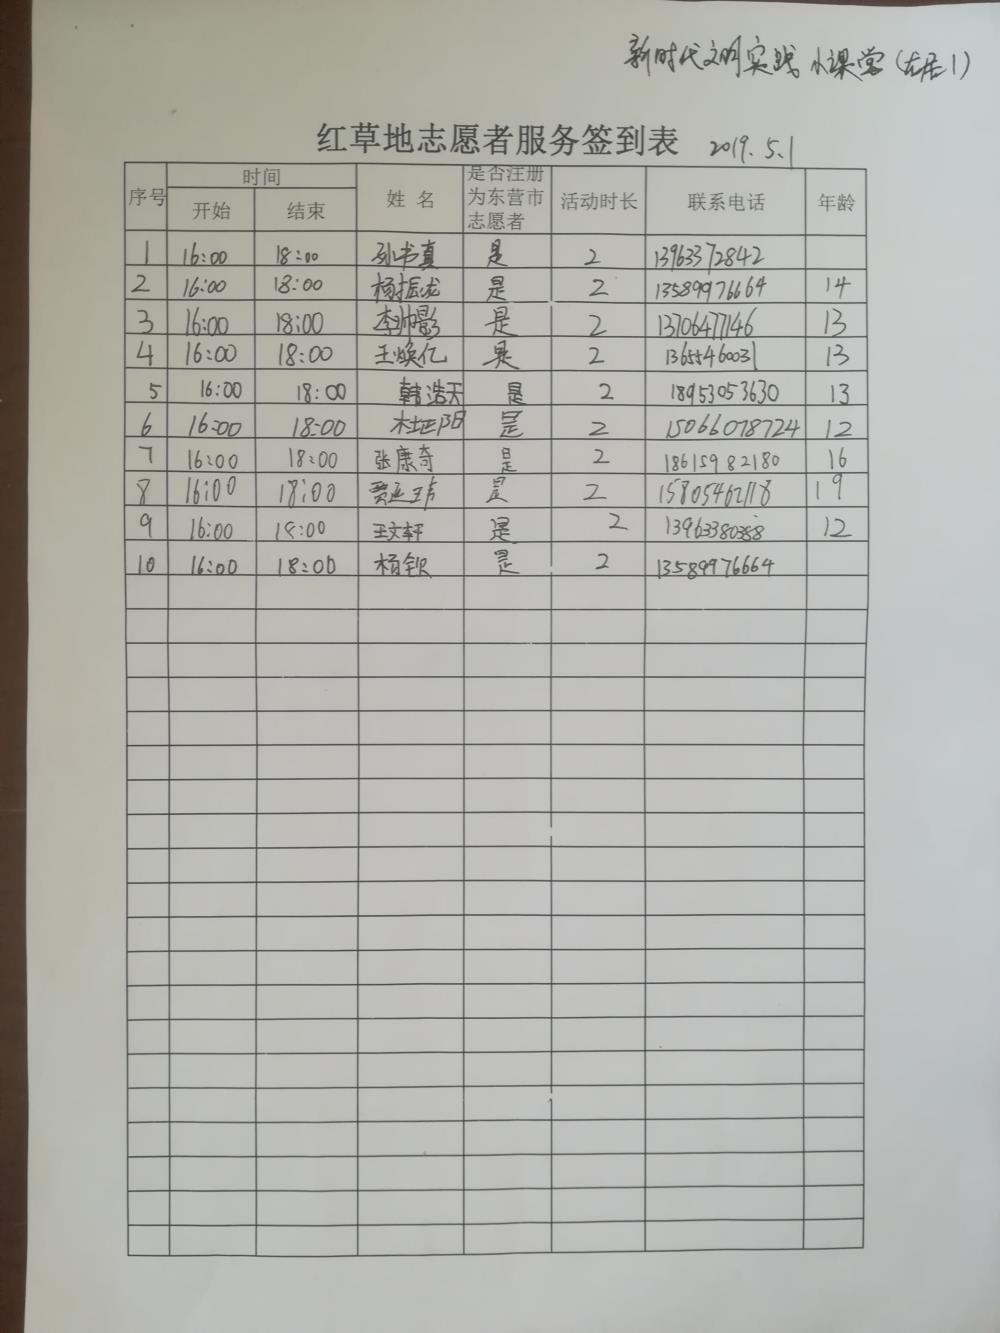 新时代文明实践小课堂(东居1)
红草地志愿者服务签到表 2019.5.1
序号 时间 姓 名 是否注册为东营市志愿者 活动时长 联系电话 年龄
开始 结束
1 16:00 18:00 孙书真 是 2 13963372842
2 16:00 18:00 杨振龙 是 2 13589976664 14
3 16:00 18:00 李帅影 是 2 13706477146 13
4 16:00 18:00 王焕亿 是 2 13655460031 13
5 16:00 18:00 韩浩天 是 2 18953053630 13
6 16:00 18:00 杜正阳 是 2 15066078724 12
7 16:00 18:00 张康奇 是 2 18615982180 16
8 16:00 18:00 是 2 15805462118 19
9 16:00 18:00 王文轩 是 2 13963380388 12
10 16:00 18:00 杨钦 是 2 13589976664